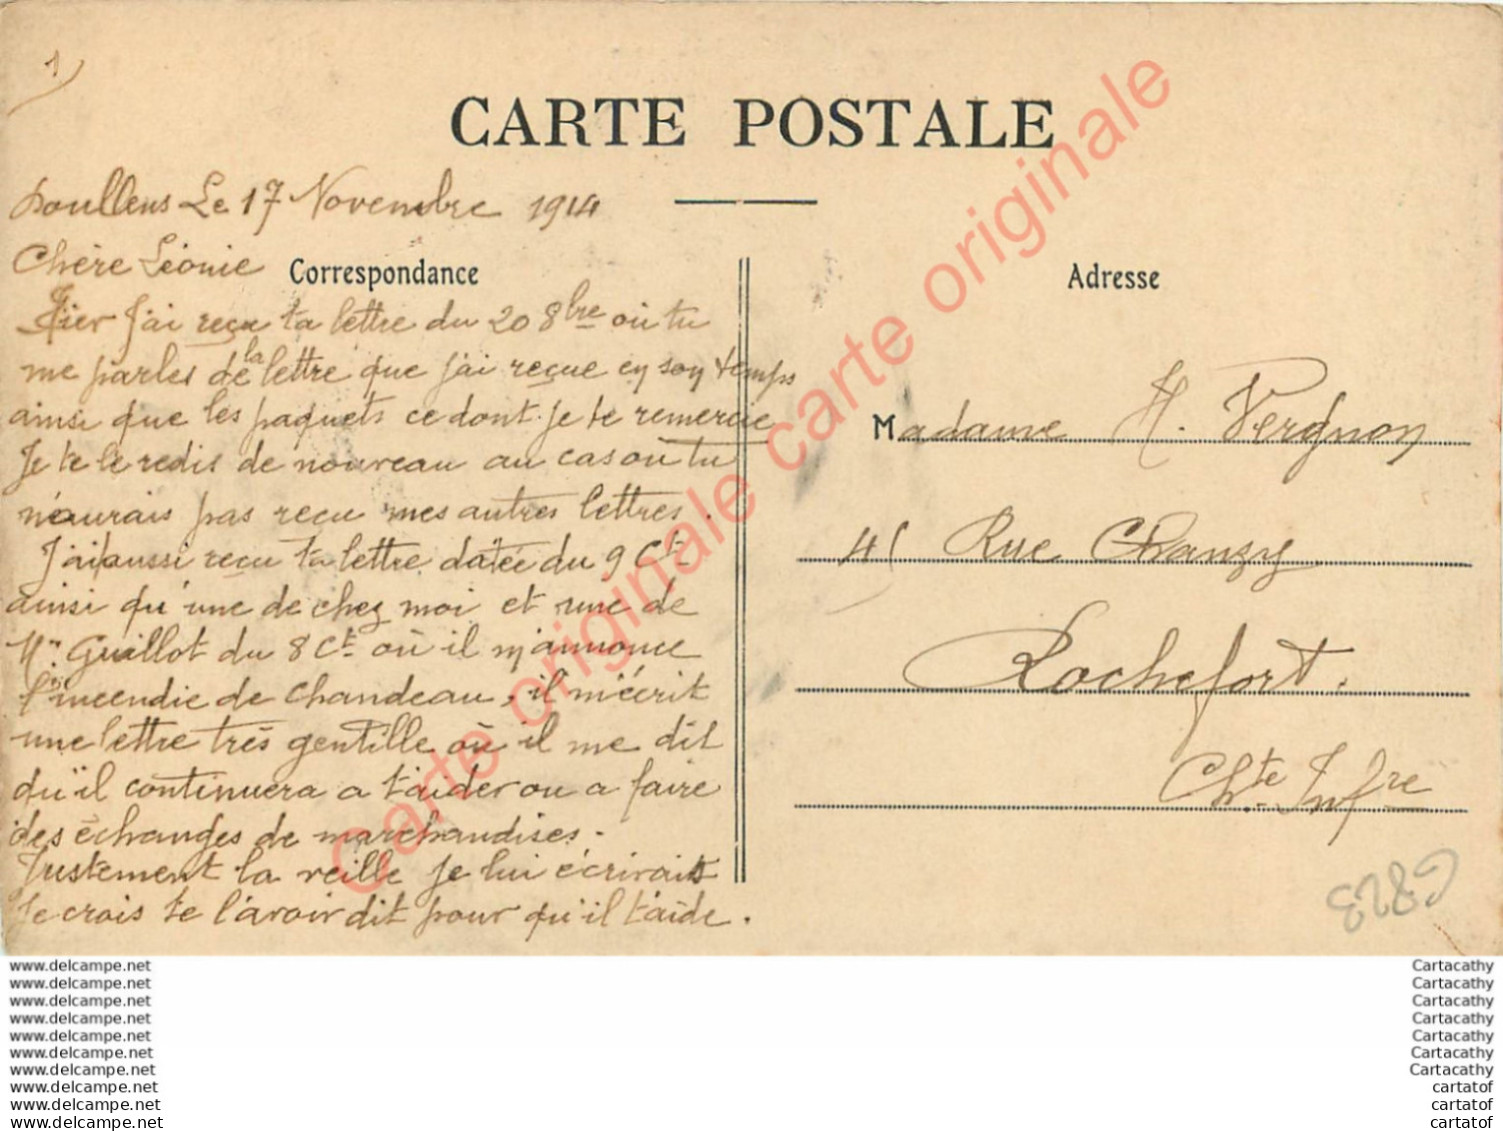 1)
CARTE POSTALE
Doullens Le 17 Novembre 1914
Chère Léonie
Correspondance
Adresse
Hier j'ai reçu ta lettre du 20 8bre où tu
me parles de la lettre que j'ai reçue en son temps
ainsi que les paquets ce dont je te remercie
Je te le redis de nouveau au cas où tu
n'aurais pas reçu mes autres lettres.
J'ai aussi reçu ta lettre datée du 9 Ct
ainsi qu'une de chez moi et une de
Mr Guillot du 8 Ct. où il m'annonce
l'incendie de Chandeau, il m'écrit
une lettre très gentille où il me dit
qu'il continuera a t'aider ou a faire
des échanges de marchandises.
Justement la veille je lui écrivais
Je crois te l'avoir dit pour qu'il t'aide.
Madame H. Vergnon
41 Rue Chanzy
Rochefort.
Chte Infre
6823
Carte originale carte originale carte originale
www.delcampe.net
www.delcampe.net
www.delcampe.net
www.delcampe.net
www.delcampe.net
www.delcampe.net
www.delcampe.net
www.delcampe.net
www.delcampe.net
www.delcampe.net
Cartacathy
Cartacathy
Cartacathy
Cartacathy
Cartacathy
Cartacathy
Cartacathy
cartatof
cartatof
cartatof